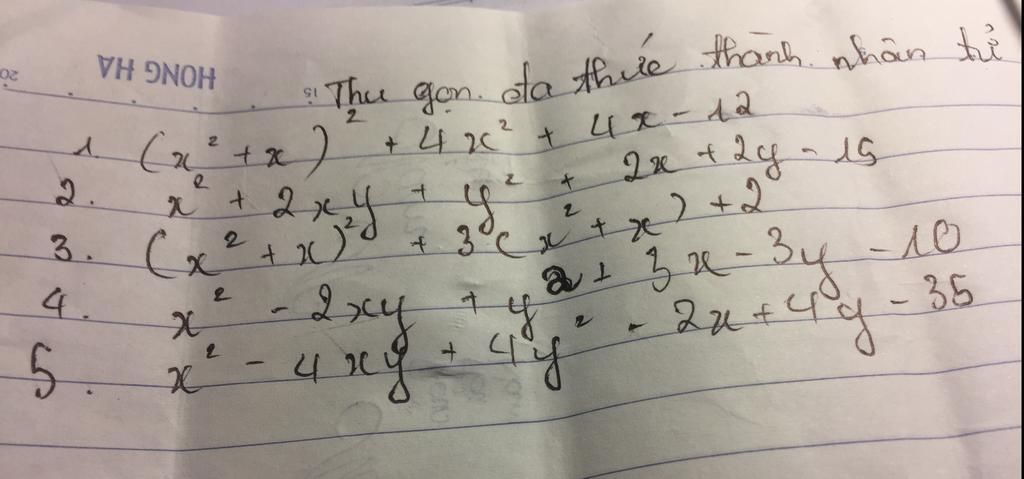 HONG HA
Thu gọn đa thức thành nhân tử
1. (x² + x)² + 4x² + 4x - 12
2. x² + 2xy + y² + 2x + 2y - 15
3. (x² + x)² + 3(x² + x) + 2
4. x² - 2xy + y² + 3x - 3y - 10
5. x² - 4xy + 4y² - 2x + 4y - 35